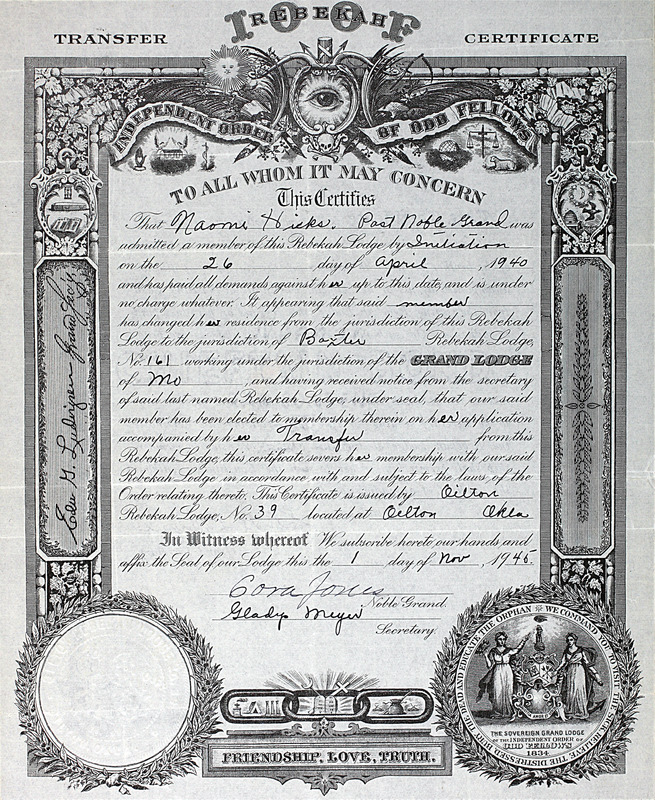 I.O.O.F.
REBEKAH
TRANSFER CERTIFICATE
INDEPENDENT ORDER OF ODD FELLOWS
TO ALL WHOM IT MAY CONCERN
This Certifies
That Naomi Hicks. Past Noble Grand was
admitted a member of this Rebekah Lodge by Initiation
on the 26 day of April, 1940
and has paid all demands against her up to this date, and is under
no charge whatever. It appearing that said member
has changed her residence from the jurisdiction of this Rebekah
Lodge to the jurisdiction of Baxter Rebekah Lodge,
No. 161 working under the jurisdiction of the GRAND LODGE
of Mo, and having received notice from the secretary
of said last named Rebekah Lodge, under seal, that our said
member has been elected to membership therein on her application
accompanied by her Transfer from this
Rebekah Lodge, this certificate severs her membership with our said
Rebekah Lodge in accordance with and subject to the laws of the
Order relating thereto. This Certificate is issued by Oilton
Rebekah Lodge, No. 39 located at Oilton Okla
In Witness whereof We subscribe hereto our hands and
affix the Seal of our Lodge this the 1 day of Nov, 1945.
Cora Jones
Noble Grand.
Gladys Meyer
Secretary.
WE COMMAND YOU TO VISIT THE SICK RELIEVE THE DISTRESSED BURY THE DEAD AND EDUCATE THE ORPHAN
THE SOVEREIGN GRAND LODGE
OF THE INDEPENDENT ORDER OF
ODD FELLOWS
1834
FRIENDSHIP, LOVE, TRUTH.